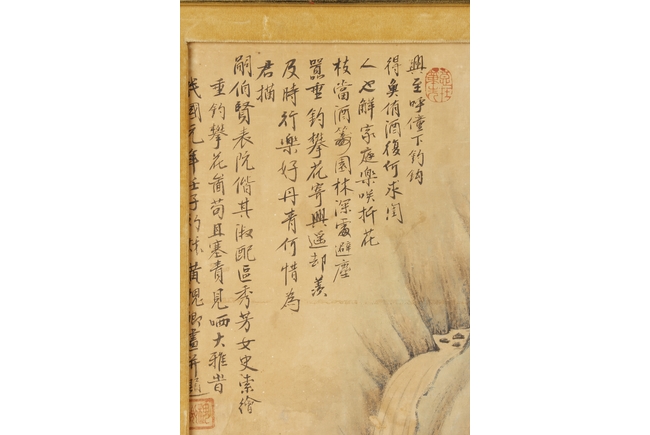 興至呼僮下釣鈎
得魚侑酒復何求閨
人也解家庭樂咲折花
枝當酒籌園林深處避塵
囂垂釣攀花寄興遥却羡
及時行樂好丹青何惜為
君描
嗣伯賢表阮偕其淑配區秀芳女史索繪
垂釣攀花圖苟且塞責見哂大雅尚
民國元年壬子初 黃 卿畫并題